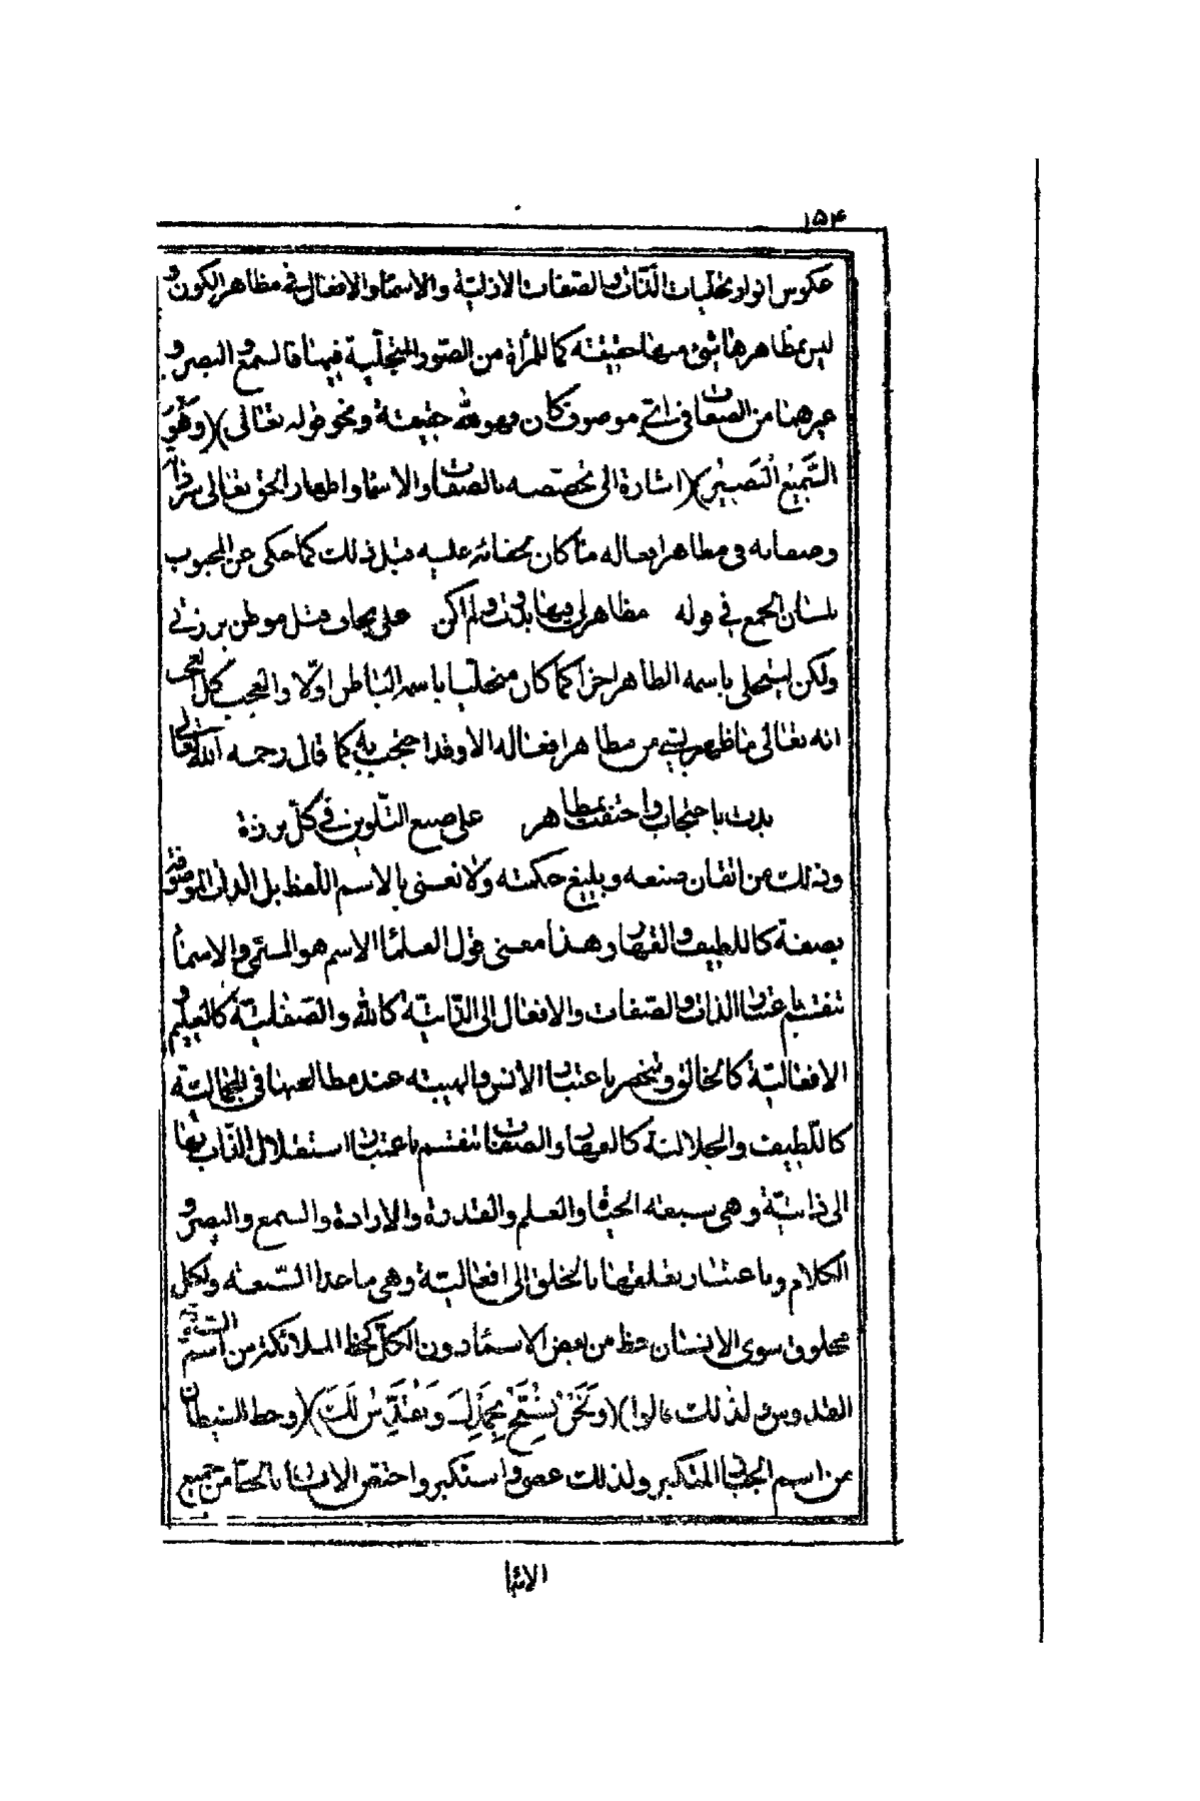 ١٥۴
عكوس انوار تجليات الذات والصفات الازلية والاسماء والافعال في مظاهر الكون و
ليس بمظاهرها شئ منها حقيقة كما للمرأة من الصور المتجلية فيها فالسمع والبصر و
غيرهما من الصفات في اي موصوف كان فهو لله حقيقة ونحو قوله تعالى (وَهُوَ
السَّمِيْعُ الْبَصِيْرُ) اشارة الى تخصصه بالصفات والاسماء واظهار الحق تعالى سر ذاته
وصفاته في مظاهر افعاله ما كان بخفائه عليه قبل ذلك كما حكى عن المحبوب
بلسان الجمع في قوله مظاهر لي فيها بدوت ولم اكن على بخاف قبل موطن برزتي
ولكن ليتجلى باسمه الظاهر اخرا كما كان متجليا باسمه الباطن اولا والعجب كل العجب
انه تعالى ما ظهر بشئ من مظاهر افعاله الا وقد احتجب به كما قال رحمه الله تعالى
بدت باحتجاب واختفت بمظاهر على صبغ التلوين في كل برزة
وذلك من اتقان صنعه وبليغ حكمته ولا نعنى بالاسم اللفظ بل الذات الموصوفة
بصفة كاللطيف والقهار وهذا معنى قول العلماء الاسم هو المسمى والاسماء
تنقسم باعتبار الذات والصفات والافعال الى الذاتية كالله والصفاتية كالعليم و
الافعالية كالخالق وتنحصر باعتبار الانس والهيبة عند مطالعتها في الجمالية
كاللطيف والجلالية كالقهار والصفات تنقسم باعتبار استقلال الذات بها
الى ذاتية وهي سبعة الحيوة والعلم والقدرة والارادة والسمع والبصر و
الكلام وباعتبار تعلقها بالخلق الى افعالية وهي ما عدا السبعة ولكل
مخلوق سوى الانسان حظ من بعض الاسماء دون الكل كحظ الملائكة من اسم السبوح
القدوس لذلك قالوا (وَنَحْنُ نُسَبِّحُ بِحَمْدِكَ وَنُقَدِّسُ لَكَ) وحظ الشيطان
من اسم الجبار المتكبر ولذلك عصى واستكبر واختص الانسان بالحظ من جميع
الاسماء